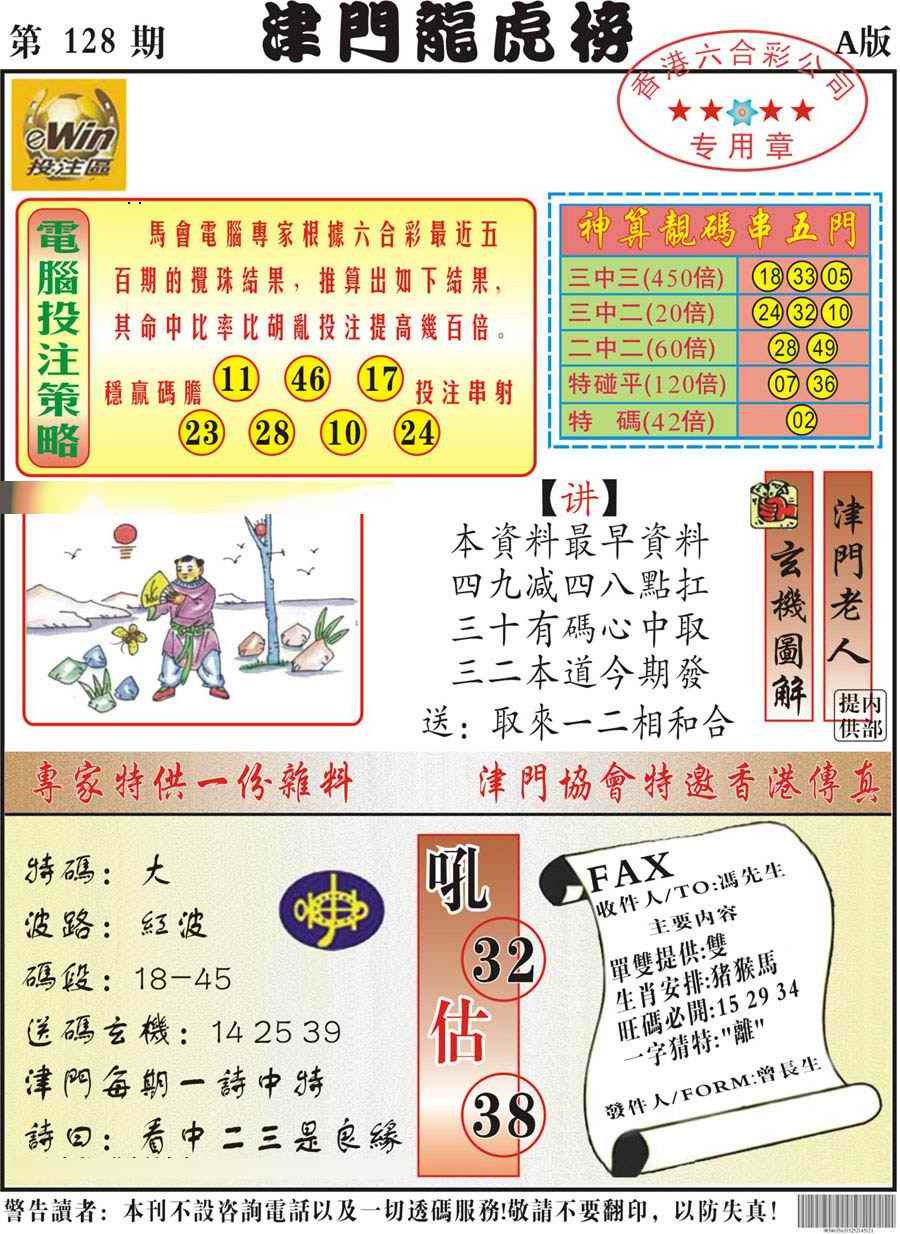 第 128 期
津門龍虎榜
A版
香港六合彩公司
专用章
eWin
投注區
電腦投注策略
馬會電腦專家根據六合彩最近五
百期的攪珠結果，推算出如下結果，
其命中比率比胡亂投注提高幾百倍。
穩贏碼膽 11 46 17 投注串射
23 28 10 24
神算靚碼串五門
三中三(450倍) 18 33 05
三中二(20倍) 24 32 10
二中二(60倍) 28 49
特碰平(120倍) 07 36
特 碼(42倍) 02
【讲】
本資料最早資料
四九減四八點扛
三十有碼心中取
三二本道今期發
送：取來一二相和合
玄機圖解
津門老人
内部提供
專家特供一份雜料
津門協會特邀香港傳真
特碼：大
波路：紅波
碼段：18-45
送碼玄機：14 25 39
津門每期一詩中特
詩曰：看中二三是良緣
吼
32
估
38
FAX
收件人/TO:馮先生
主要内容
單雙提供:雙
生肖安排:猪猴馬
旺碼必開:15 29 34
一字猜特:"離"
發件人/FORM:曾長生
警告讀者：本刊不設咨詢電話以及一切透碼服務!敬請不要翻印，以防失真!